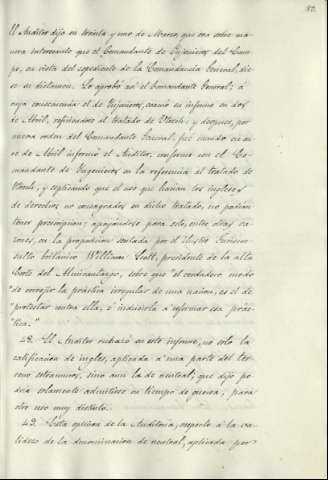 82.
El Auditor dijo en treinta y uno de Marzo, que era sobre ma-
nera interesante que el Comandante de Ingenieros del Cam-
po, en vista del espediente de la Comandancia General, die-
se su dictamen. Lo aprobó así el Comandante General; á
cuya consecuencia el de Ingenieros, evacuó su informe en dos
de Abril, refiriéndose al tratado de Utrech; y despues, por
nueva orden del Comandante General
de Abril informó el Auditor, conforme con el Co-
mandante de Ingenieros en la referencia al tratado de
Utrech, y esplicando que el uso que hacian los ingleses
de derechos no consagrados en dicho tratado, no podian
tener prescripcion; apoyándose para esto, entre otras ra-
zones, en la proposicion sentada por el ilustre Juriscon-
sulto británico William Scott, presidente de la alta
Corte del Almirantazgo, sobre que "el verdadero modo
"de corregir la práctica irregular de una nacion, es el de
"protestar contra ella, é inducirla á reformar esa prác-
"tica."
48. El Auditor rechazó en este informe, no solo la
calificacion de ingles, aplicada á una parte del ter-
reno estramuros, sino aun la de neutral; que dijo po-
dria solamente admitirse en tiempo de guerra, para
otro uso muy distinto.
49. Esta opinion de la Auditoria, respecto á la va-
lidez de la denominacion de neutral, aplicada por